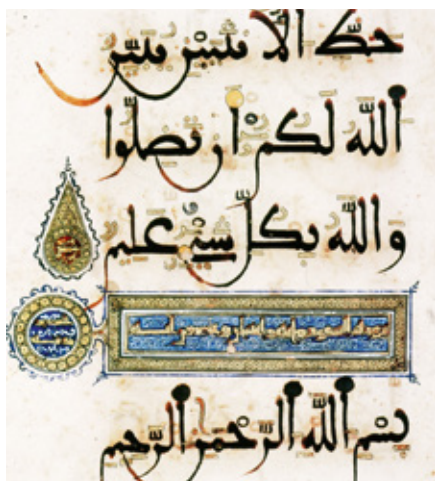 حظ الأنثيين يبين
الله لكم أن تضلوا
والله بكل شيء عليم
سورة المائدة
بسم الله الرحمن الرحيم